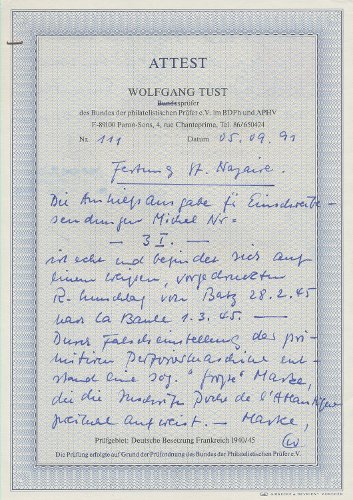 ATTEST
WOLFGANG TUST
Bundesprüfer
des Bundes der philatelistischen Prüfer e.V. im BDPh und APHV
F-89100 Paron-Sens, 4, rue Chanteprime, Tel. 86/650424
Nr. 111 Datum 05.09.91
Festung St. Nazaire.
Die Aushilfsausgabe für Einschreibe-
sendungen Michel Nr.
— 3 I. —
ist echt und befindet sich auf
einem weissen, vorgedruckten
R. Umschlag von Batz 28.2.45
nach La Baule 1.3.45. —
Durch Falscheinstellung der pri-
mitiven Perforermaschine ent-
stand eine sog. "große" Marke,
die die Inschrift Poche de l'Atlantique
aufweist. — Marke,
Prüfgebiet: Deutsche Besetzung Frankreich 1940/45
Die Prüfung erfolgte auf Grund der Prüfordnung des Bundes der Philatelistischen Prüfer e.V.